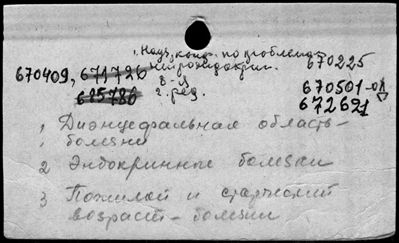 1. Науч. конф. по проблемам
нейроэндокрин. 670225
670409, 671726 3-я
675786 г. ред. 670501-ОД
672621
1 Диэнцефальная область –
болезни
2 Эндокринные болезни
3 Пожилой и старческий
возраст – болезни